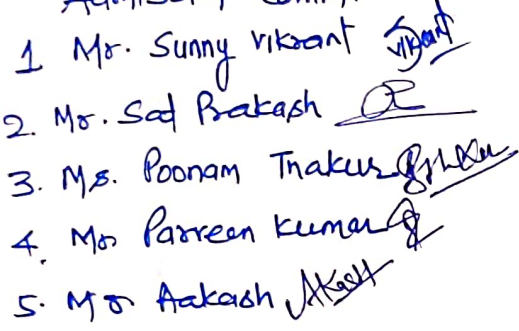 1 Mr. Sunny Vikrant Vikrant
2. Mr. Sat Prakash
3. Ms. Poonam Thakur
4. Mr Parveen Kumar
5. Mr Aakash Akash